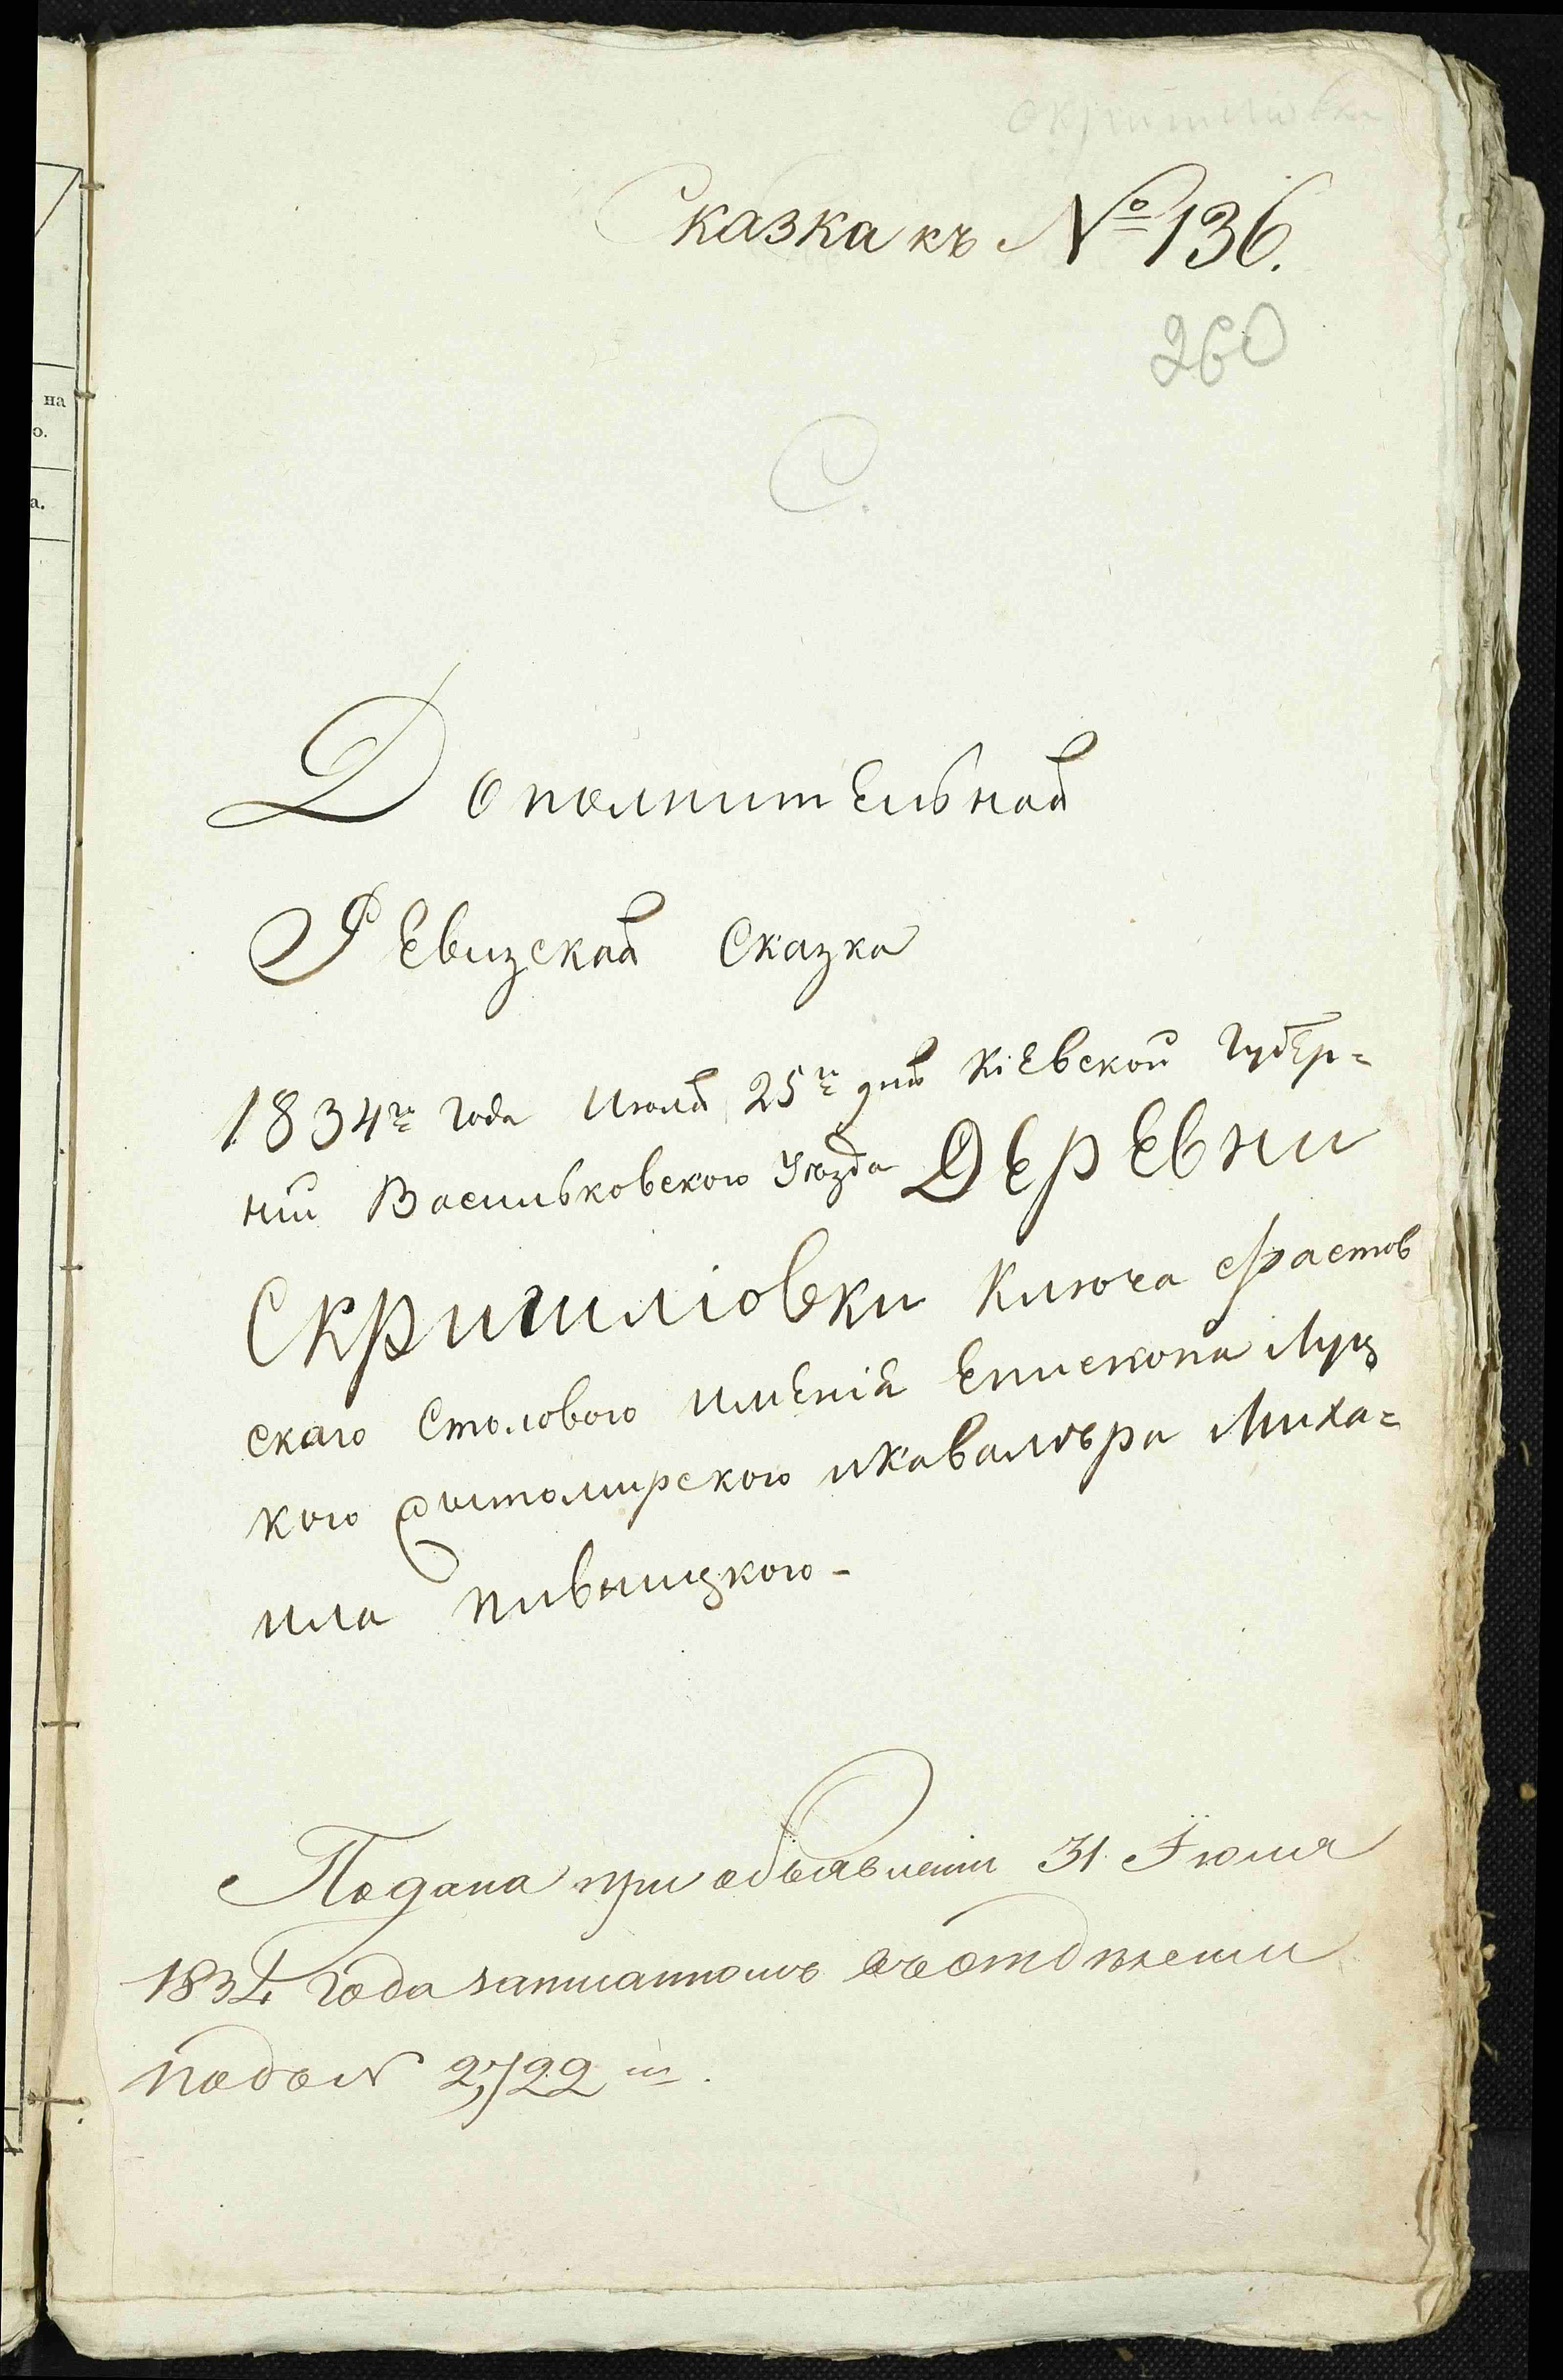 Сказка къ № 136.
260
С.
Дополнительная
Ревизская Сказка
1834го года Июля 25го дня Кіевской Губер=
нии Васильковского Уѣзда Деревни
Скригиліовки Ключа Фастов
скаго Столового имения Епископа Луц
кого Житомирского и Кавалѣра Миха=
ила Пивницкого -
Подана при объявленіи 31 Іюля
1834 года записанномъ въ отдѣлении
подъ № 2,722 мъ.
на
о.
а.